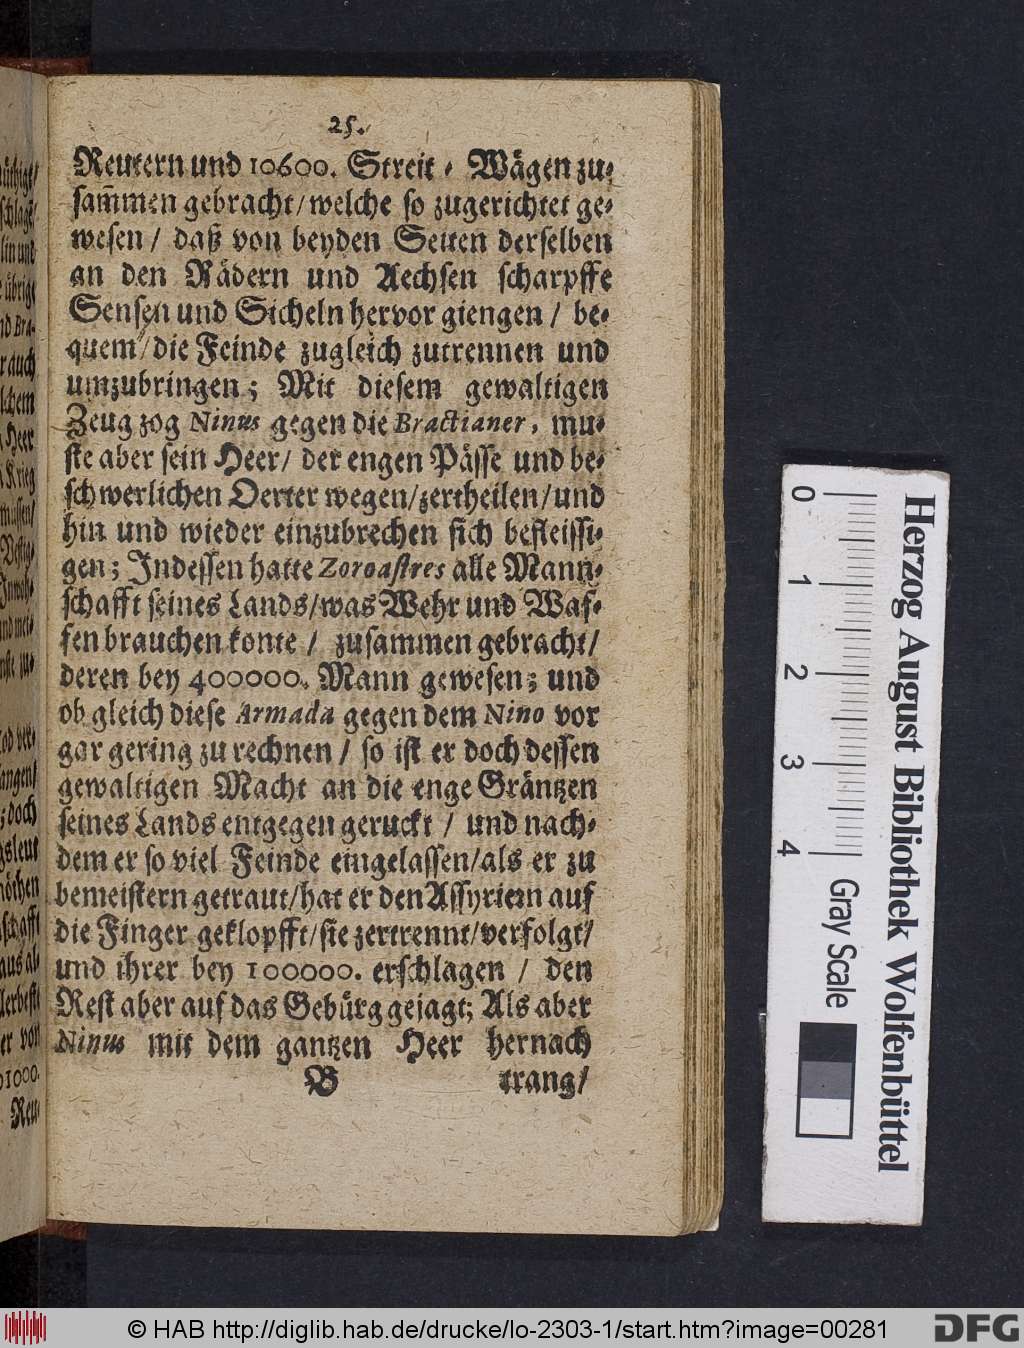 25.
Reutern und 10600. Streit-Wägen zu-
sam̃men gebracht/ welche so zugerichtet ge-
wesen / daß von beyden Seiten derselben
an den Rädern und Aechsen scharpffe
Sensen und Sicheln hervor giengen / be-
quem / die Feinde zugleich zutrennen und
umzubringen; Mit diesem gewaltigen
Zeug zog Ninus gegen die Bractianer, mu-
ste aber sein Heer/ der engen Pässe und be-
schwerlichen Oerter wegen/zertheilen/und
hin und wieder einzubrechen sich befleissi-
gen; Indessen hatte Zoroastres alle Mann-
schafft seines Lands/was Wehr und Waf-
fen brauchen konte / zusammen gebracht/
deren bey 400000. Mann gewesen; und
ob gleich diese Armada gegen dem Nino vor
gar gering zu rechnen / so ist er doch dessen
gewaltigen Macht an die enge Gräntzen
seines Lands entgegen geruckt / und nach-
dem er so viel Feinde eingelassen/als er zu
bemeistern getraut/hat er den Assyriern auf
die Finger geklopfft/sie zertrennt/verfolgt/
und ihrer bey 100000. erschlagen / den
Rest aber auf das Gebürg gejagt; Als aber
Ninus mit dem gantzen Heer hernach
B trang/
übrige
nd Bra-
r auch
lchem
Heer
Krieg
doch
öthen
er von
01000.
Reu-
0 1 2 3 4 Gray Scale
Herzog August Bibliothek Wolfenbüttel
© HAB http://diglib.hab.de/drucke/lo-2303-1/start.htm?image=00281
DFG